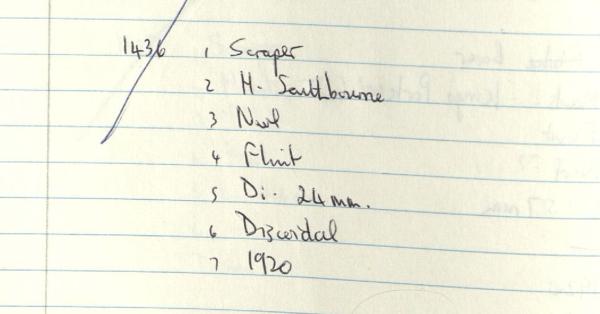 1436 1 Scraper
2 H. Southbourne
3 Neol
4 Flint
5 Di. 24 mm.
6 Discoidal
7 1920